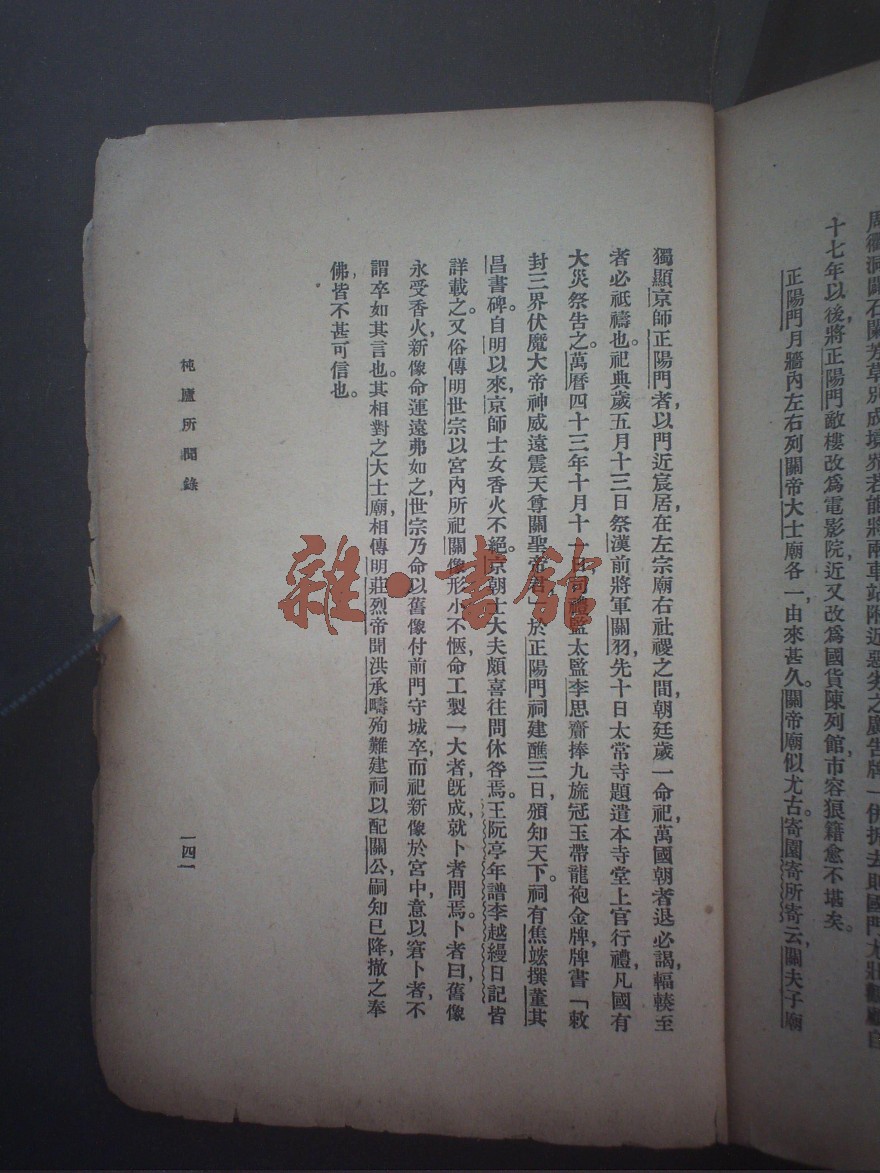 周衢洞闢石闌芳草別成境界若能將兩車站附近惡劣之廣告牌一併拆去則國門尤壯觀
十七年以後，將正陽門敵樓改爲電影院，近又改爲國貨陳列館，市容狼籍愈不堪矣。
正陽門月牆內左右列關帝大士廟各一，由來甚久。關帝廟似尤古。寄園寄所寄云，關夫子廟
獨顯京師正陽門者，以門近宸居，在左宗廟右社稷之間，朝廷歲一命祀，萬國朝者退必謁，輻輳至
者必祗禱也。祀典歲五月十三日祭漢前將軍關羽，先十日太常寺題遣本寺堂上官行禮，凡國有
大災祭告之。萬曆四十三年十月十一日司禮監太監李思齋捧九旒冠玉帶龍袍金牌，牌書「敕
封三界伏魔大帝神威遠震天尊關聖帝君」於正陽門祠建醮三日，頒知天下。祠有焦竑撰董其
昌書碑。自明以來，京師士女香火不絕。京朝士大夫頗喜往問休咎焉。王阮亭年譜李越縵日記皆
詳載之。又俗傳明世宗以宮內所祀關像形小不愜，命工製一大者，旣成，就卜者問焉。卜者曰舊像
永受香火，新像命運遠弗如之，世宗乃命以舊像付前門守城卒，而祀新像於宮中，意以窘卜者，不
謂卒如其言也。其相對之大士廟，相傳明莊烈帝聞洪承疇殉難建祠以配關公，嗣知已降，撤之奉
佛，皆不甚可信也。
杶廬所聞錄
一四一
雜·書館